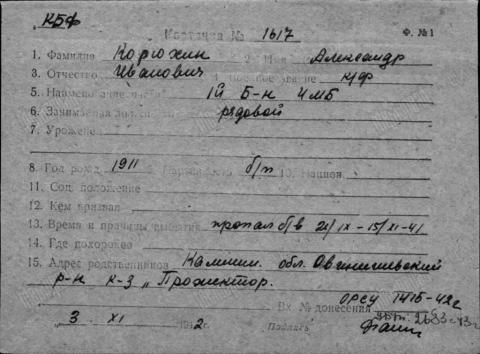 КБФ
Карточка № 1617
Ф. №1
1. Фамилия Корюхин 2. Имя Александр
3. Отчество Иванович 4. Военное звание к/ф
5. Наименование части 1й Б-н 4 МБ
6. Занимаемая должн. рядовой
7. Уроженец
8. Год рожд. 1911 б/п 10. Национ.
11. Соц. положение
12. Кем призван
13. Время и причины выбытия пропал б/в 20/IX - 15/XI-41
14. Где похоронен
15. Адрес родственников Калинин. обл. Овинищевский
р-н к-з „Прожектор.
ОРСУ 1415-42г
Вх № донесения
2683-43г
„3 XI 1942г. Подпись